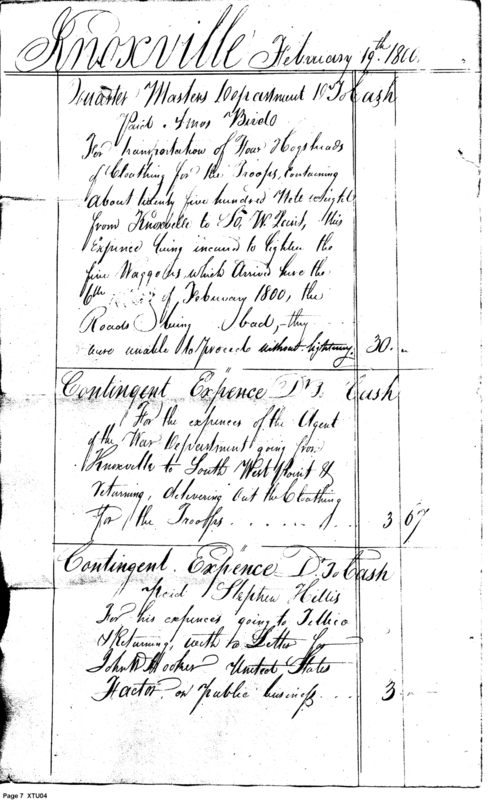 Knoxville February 19th. 1800.
Quarter Masters Department Dr To Cash
Paid Amos Bird
For transportation of Four Hogsheads
of Cloathing for the Troops, Containing
About twenty five hundred Nete weight
from Knoxville to So. W. Point, this
Expence being incured to lighten the
five Waggons which Arrived here the
6th of February 1800, the
Roads being bad, they
were unable to proceed without lightning. 30. "
Contingent Expence Dr To Cash
For the expences of the Agent
of the War Department going from
Knoxville to South West Point &
returning, delivering out the Cloathing
For the Troops . . . . . . . . 3 67
Contingent Expence Dr To Cash
paid Stephen Hillis
For his expences going to Tellico
& Returning, with a Letter for
John W Hooker United States
Factor on public business . . . 3 "
Page 7 XTU04